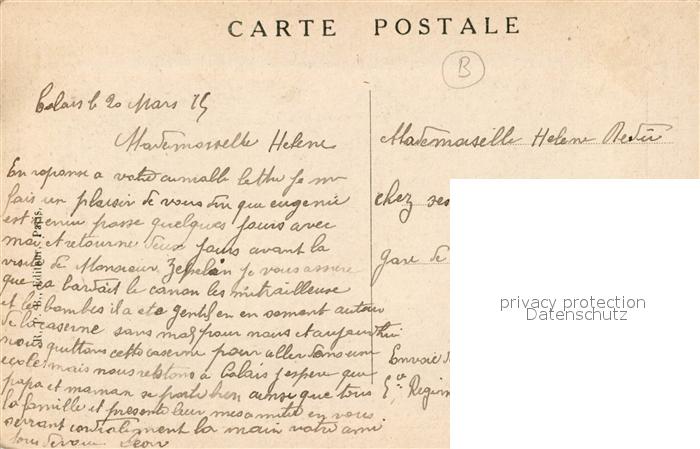 CARTE POSTALE
B
Calais le 20 Mars 15
Mademoiselle Helene
En reponse a votre aimable lettre je me
fais un plaisir de vous dire que eugenie
est venir passe quelques jours avec
moi et retourne deux jours avant la
visite de Monsieur Zeppelin je vous assure
que ca bardait le canon les mitrailleuse
et les bombes il a ete gentil en en semant autour
de la caserne sans mal pour nous et aujourd'hui
nous quittons cette caserne pour aller dans une
ecole mais nous restons a Calais j espere que
papa et maman se porte bien ainsi que tous
la famille et presente leur mes amitié en vous
serrant cordialement la main votre ami
Leon
éditeur, Paris.
Mademoiselle Helene
chez ses
gare de
Envoie
Regim
privacy protection
Datenschutz